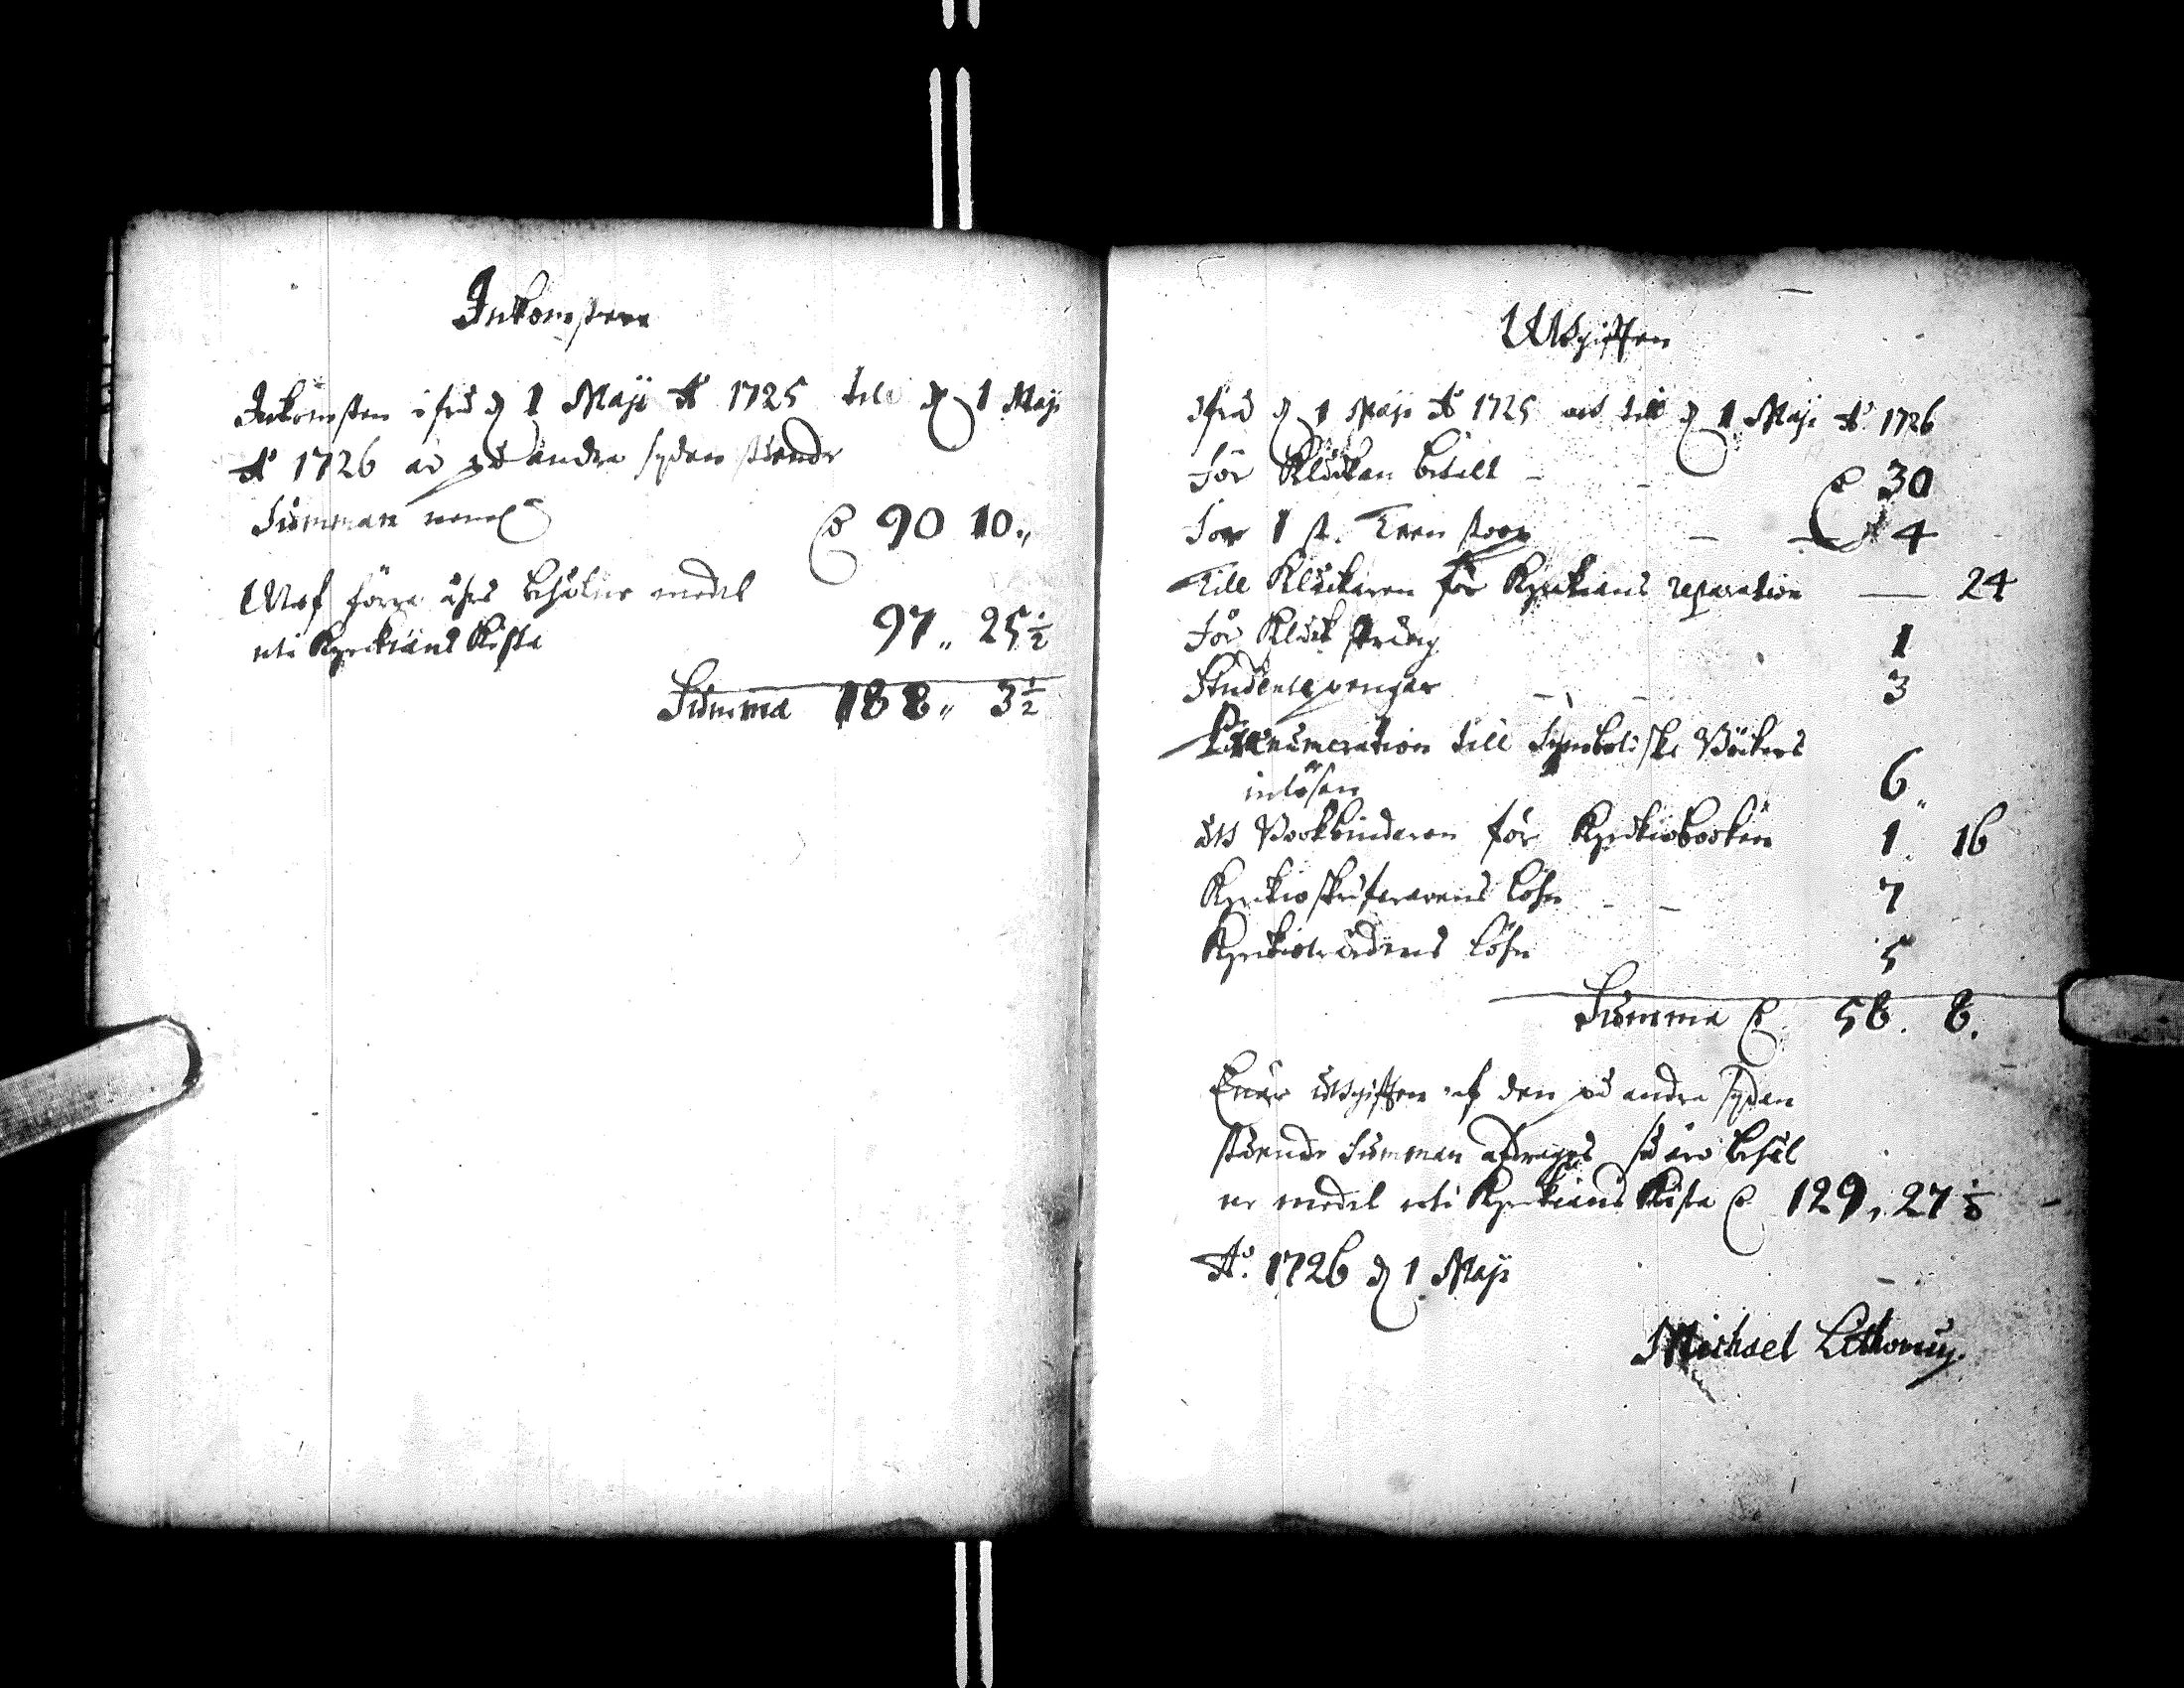 Inkomsten
Inkomsten ifrå d 1 Maji Ao 1725 till d 1 Maji
Ao 1726 är på andra sydan stående
Summan 90 10
Utaf förra åhrs behålne medel
uti Kyrkians Kista 97 25½
Summa 188 3½
Utgiften
Ifrå d 1 Maji Ao 1725 och till d 1 Maji Ao 1726
För Klåckan betalt 30
For 1 st. 4
Till Klåckaren för Kyrkians reparation 24
För Klåck sträng 1
Studentepengar 3
Prænumeration till Symboliske Böckers
inlösen 6
åth Bookbindaren för Kyrkiobooken 1 16
Kyrkioskrifvarens löhn 7
Kyrkiowärdens löhn 5
Summa 58. 8.
Enär utgiften af den på andra sydan
stående Summan afdrages så äro behål
ne medel uti Kyrkians Kista 129, 27½
Ao. 1726 d 1 Maji
Michael Lithovius.